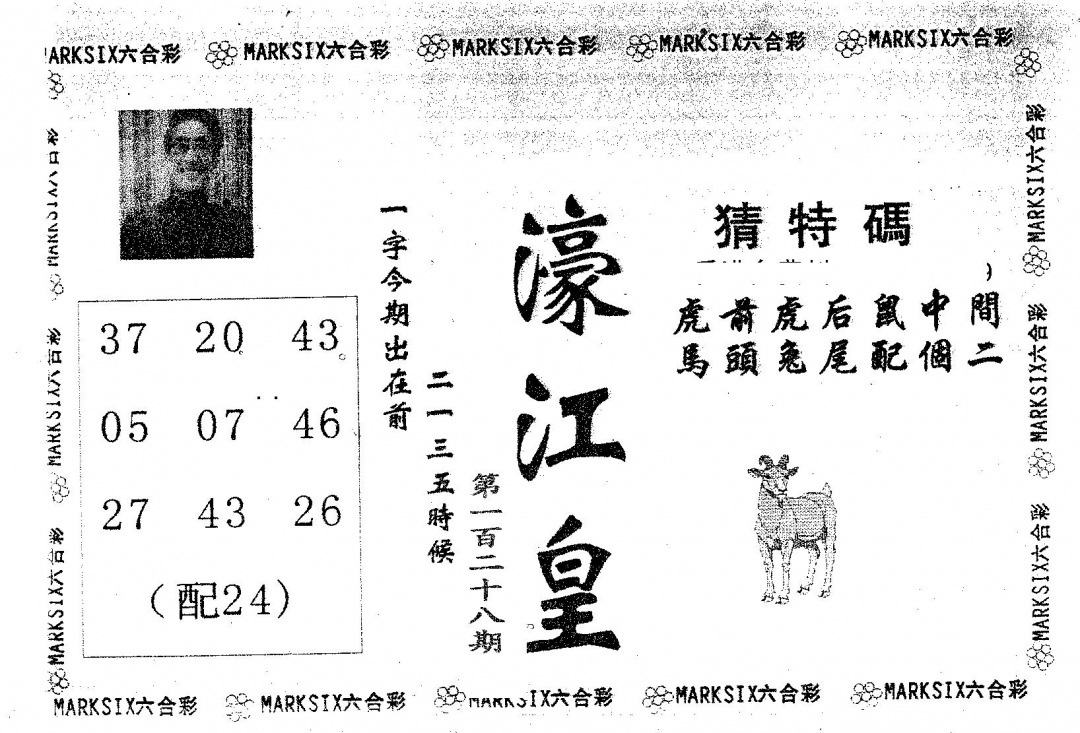 MARKSIX六合彩 MARKSIX六合彩 MARKSIX六合彩 MARKSIX六合彩
猜特碼
虎前虎后鼠中間
馬頭兔尾配個二
濠江皇
第一百二十八期
一字今期出在前
二一三五時候
37 20 43
05 07 46
27 43 26
(配24)
MARKSIX六合彩
MARKSIX六合彩
MARKSIX六合彩
MARKSIX六合彩
MARKSIX六合彩
MARKSIX六合彩 MARKSIX六合彩 MARKSIX六合彩 MARKSIX六合彩 MARKSIX六合彩